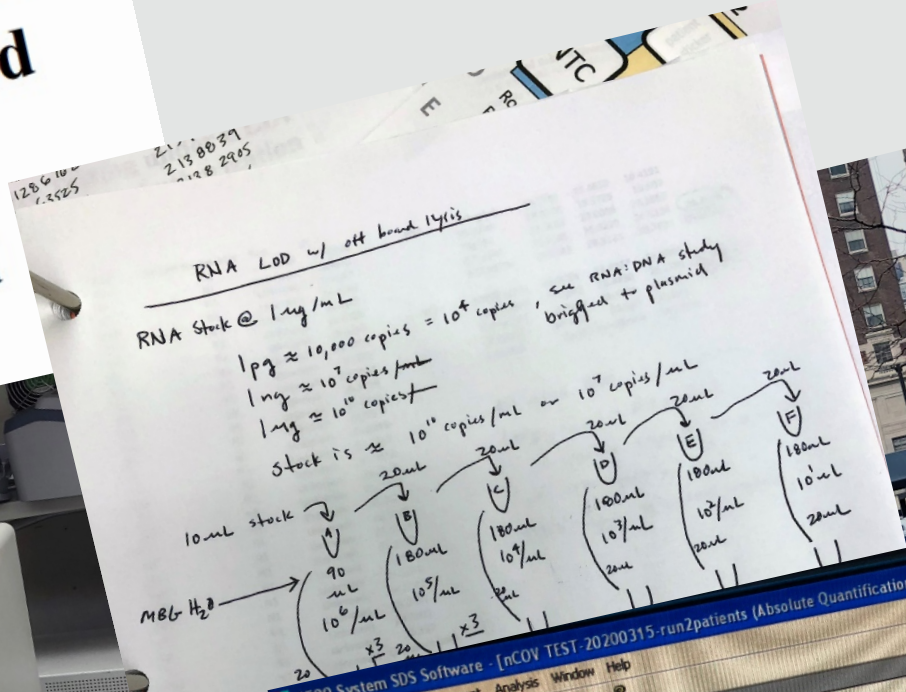 d
NTC
E
2138839
2138 2905
RNA LOD w/ off board lysis
RNA Stock @ 1 ug/mL
1pg ≈ 10,000 copies = 10⁴ copies , see RNA:DNA study
brigged to plasmid
1ng ≈ 10⁷ copies/mL
1ug ≈ 10¹⁰ copies/
Stock is ≈ 10¹⁰ copies/mL or 10⁷ copies/uL
10uL stock 20uL 20uL 20uL 20uL 20uL
A B C D E F
MBG H₂O 90 uL 180uL 180uL 180uL 180uL 180uL
10⁶/uL 10⁵/uL 10⁴/uL 10³/uL 10²/uL 10¹uL
20uL 20uL 20uL 20uL
x3 x3
20 20
System SDS Software - [nCOV TEST-20200315-run2patients (Absolute Quantification
Analysis Window Help